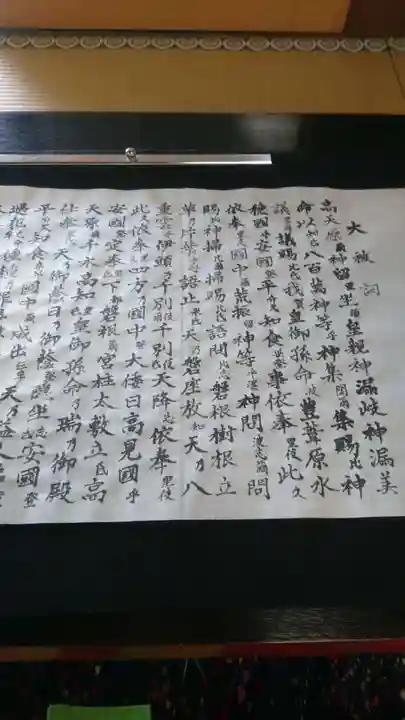 大祓詞
高天原爾神留里坐須皇親神漏岐神漏美
命以知氐八百萬神等乎神集閉爾集賜比神
議里爾議賜比氐我賀皇御孫命波豊葦原水
穂國乎安國登平介久知食世登事依奉里伎此久
依奉里志國中爾荒振留神等乎波神問波志爾問
賜比神掃比爾掃賜比氐語問比志磐根樹根立
草乃片葉乎母語止米氐天乃磐座放知天乃八
重雲乎伊頭乃千別伎爾千別伎氐天降志依奉里伎
此久依奉里志四方乃國中登大倭日高見國乎
安國登定奉里氐下都磐根爾宮柱太敷立氐高
天原爾千木高知里氐皇御孫命乃瑞乃御殿
仕奉里氐天乃御蔭日乃御蔭登隠坐志氐安國登
平介久知食佐牟國中爾成出牟天乃益人等
過犯